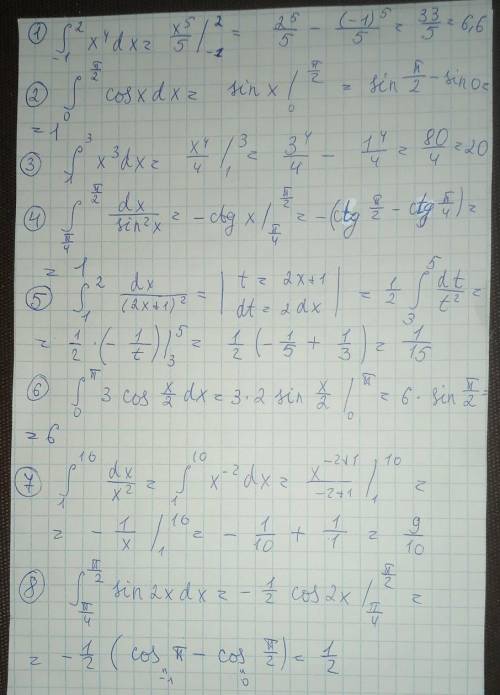 ① ∫₋₁² x⁴dx = x⁵/5 |₋₁² = 2⁵/5 − (−1)⁵/5 = 33/5 = 6,6
② ∫₀^(π/2) cosxdx = sin x |₀^(π/2) = sin π/2 − sin 0 =
= 1
③ ∫₁³ x³dx = x⁴/4 |₁³ = 3⁴/4 − 1⁴/4 = 80/4 = 20
④ ∫_(π/4)^(π/2) dx/sin²x = −ctg x |_(π/4)^(π/2) = −(ctg π/2 − ctg π/4) =
= 1
⑤ ∫₁² dx/(2x+1)² = | t = 2x+1
dt = 2dx | = 1/2 ∫₃⁵ dt/t² =
= 1/2 · (−1/t) |₃⁵ = 1/2 (−1/5 + 1/3) = 1/15
⑥ ∫₀^π 3 cos x/2 dx = 3·2 sin x/2 |₀^π = 6 · sin π/2 =
= 6
⑦ ∫₁¹⁶ dx/x² = ∫₁¹⁰ x⁻²dx = x⁻²⁺¹/−2+1 |₁¹⁰ =
= −1/x |₁¹⁶ = −1/10 + 1/1 = 9/10
⑧ ∫_(π/4)^(π/2) sin 2x dx = −1/2 cos 2x |_(π/4)^(π/2) =
= −1/2 (cos π − cos π/2) = 1/2
" −1 " 0